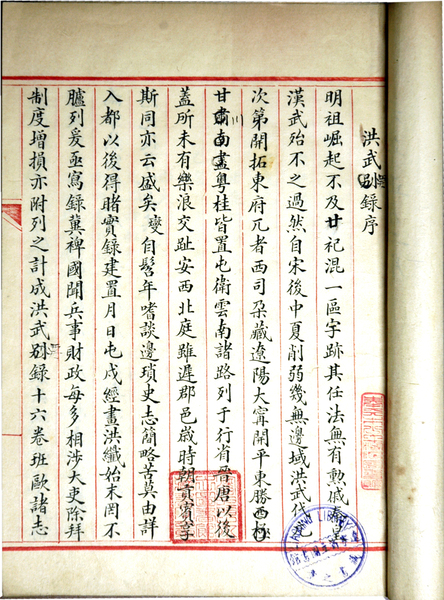 洪武別錄序
明祖崛起不及廿祀混一區宇跡其任法無有勲戚
漢武殆不之過然自宋後中夏削弱幾無邊域洪武代
次第開拓東府兀者西司朶藏遼陽大甯開平東勝西
甘肅南盡粵桂皆置屯衛雲南諸路列于行省晉唐以後
蓋所未有樂浪交趾安西北庭雖遲郡邑歲時朝貢賓
斯同亦云盛矣變自髫年嗜談邊瑣史志簡略苦莫由詳
入都以後得睹實錄建置月日屯戍經畫洪纖始末罔不
臚列爰亟寫錄冀裨國聞兵事財政每多相涉大吏除拜
制度增損亦附列之計成洪武別錄十六卷班歐諸志